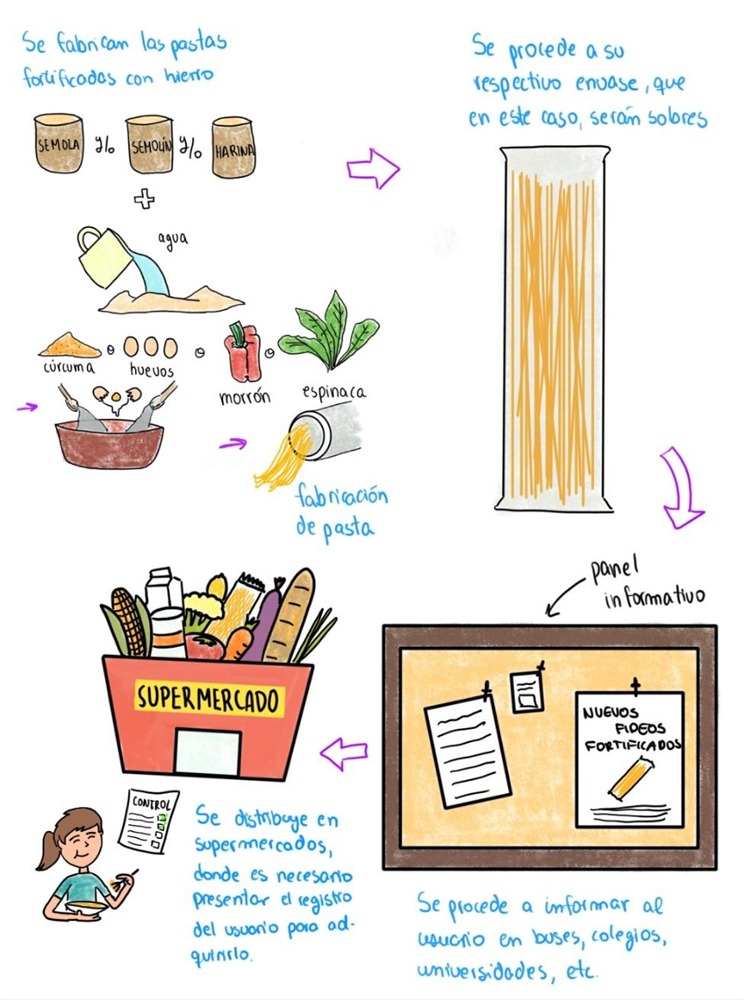 Se fabrican las pastas
fortificadas con hierro
SEMOLA y/o SEMOLÍN y/o HARINA
+
agua
cúrcuma o huevos o morrón o espinaca
fabricación
de pasta
Se procede a su
respectivo envase, que
en este caso, serán sobres
panel
informativo
NUEVOS
FIDEOS
FORTIFICADOS
Se procede a informar al
usuario en buses, colegios,
universidades, etc.
SUPERMERCADO
CONTROL
Se distribuye en
supermercados,
donde es necesario
presentar el registro
del usuario para ad-
quirirlo.